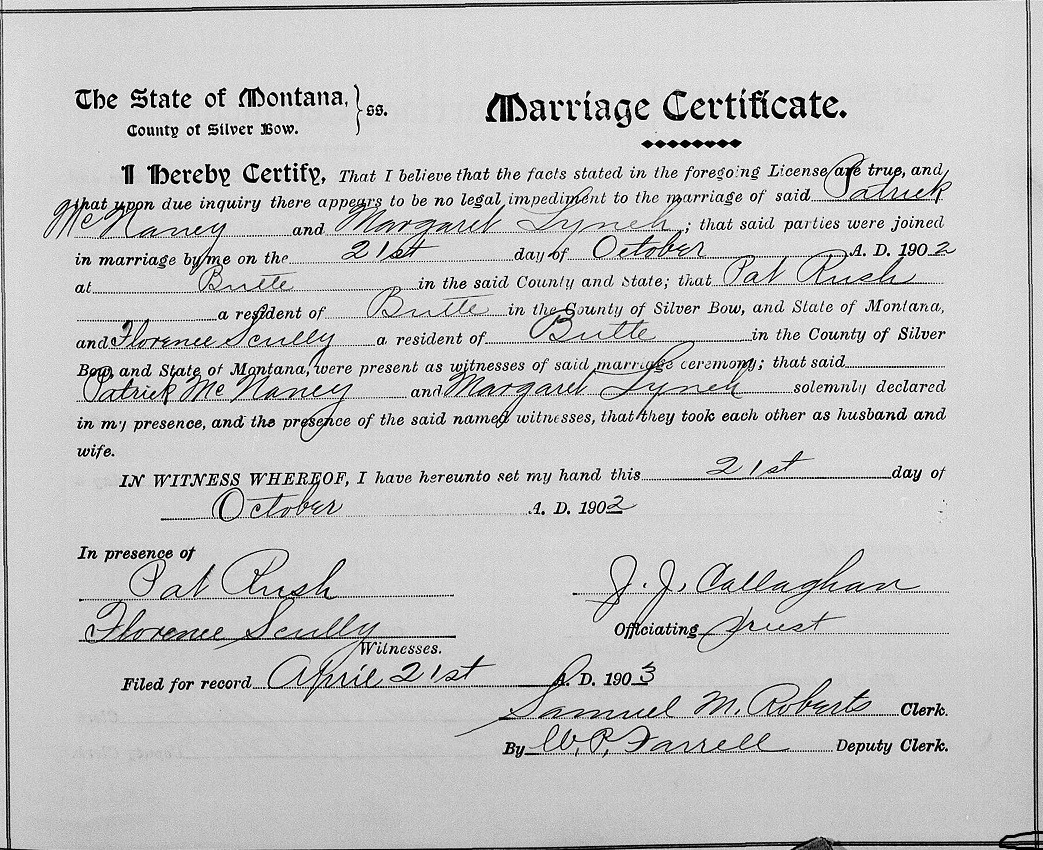 The State of Montana, } ss.
County of Silver Bow.
Marriage Certificate.
I Hereby Certify, That I believe that the facts stated in the foregoing License are true, and
that upon due inquiry there appears to be no legal impediment to the marriage of said Patrick
McNaney and Margaret Lynch; that said parties were joined
in marriage by me on the 21st day of October A. D. 1902
at Butte in the said County and State; that Pat Rush
a resident of Butte in the County of Silver Bow, and State of Montana,
and Florence Scully a resident of Butte in the County of Silver
Bow, and State of Montana, were present as witnesses of said marriage ceremony; that said
Patrick McNaney and Margaret Lynch solemnly declared
in my presence, and the presence of the said named witnesses, that they took each other as husband and
wife.
IN WITNESS WHEREOF, I have hereunto set my hand this 21st day of
October A. D. 1902
In presence of
Pat Rush
J. J. Callaghan
Florence Scully
Officiating Priest
Witnesses.
Filed for record April 21st A. D. 1903
Samuel M. Roberts Clerk.
By W. P. Farrell Deputy Clerk.